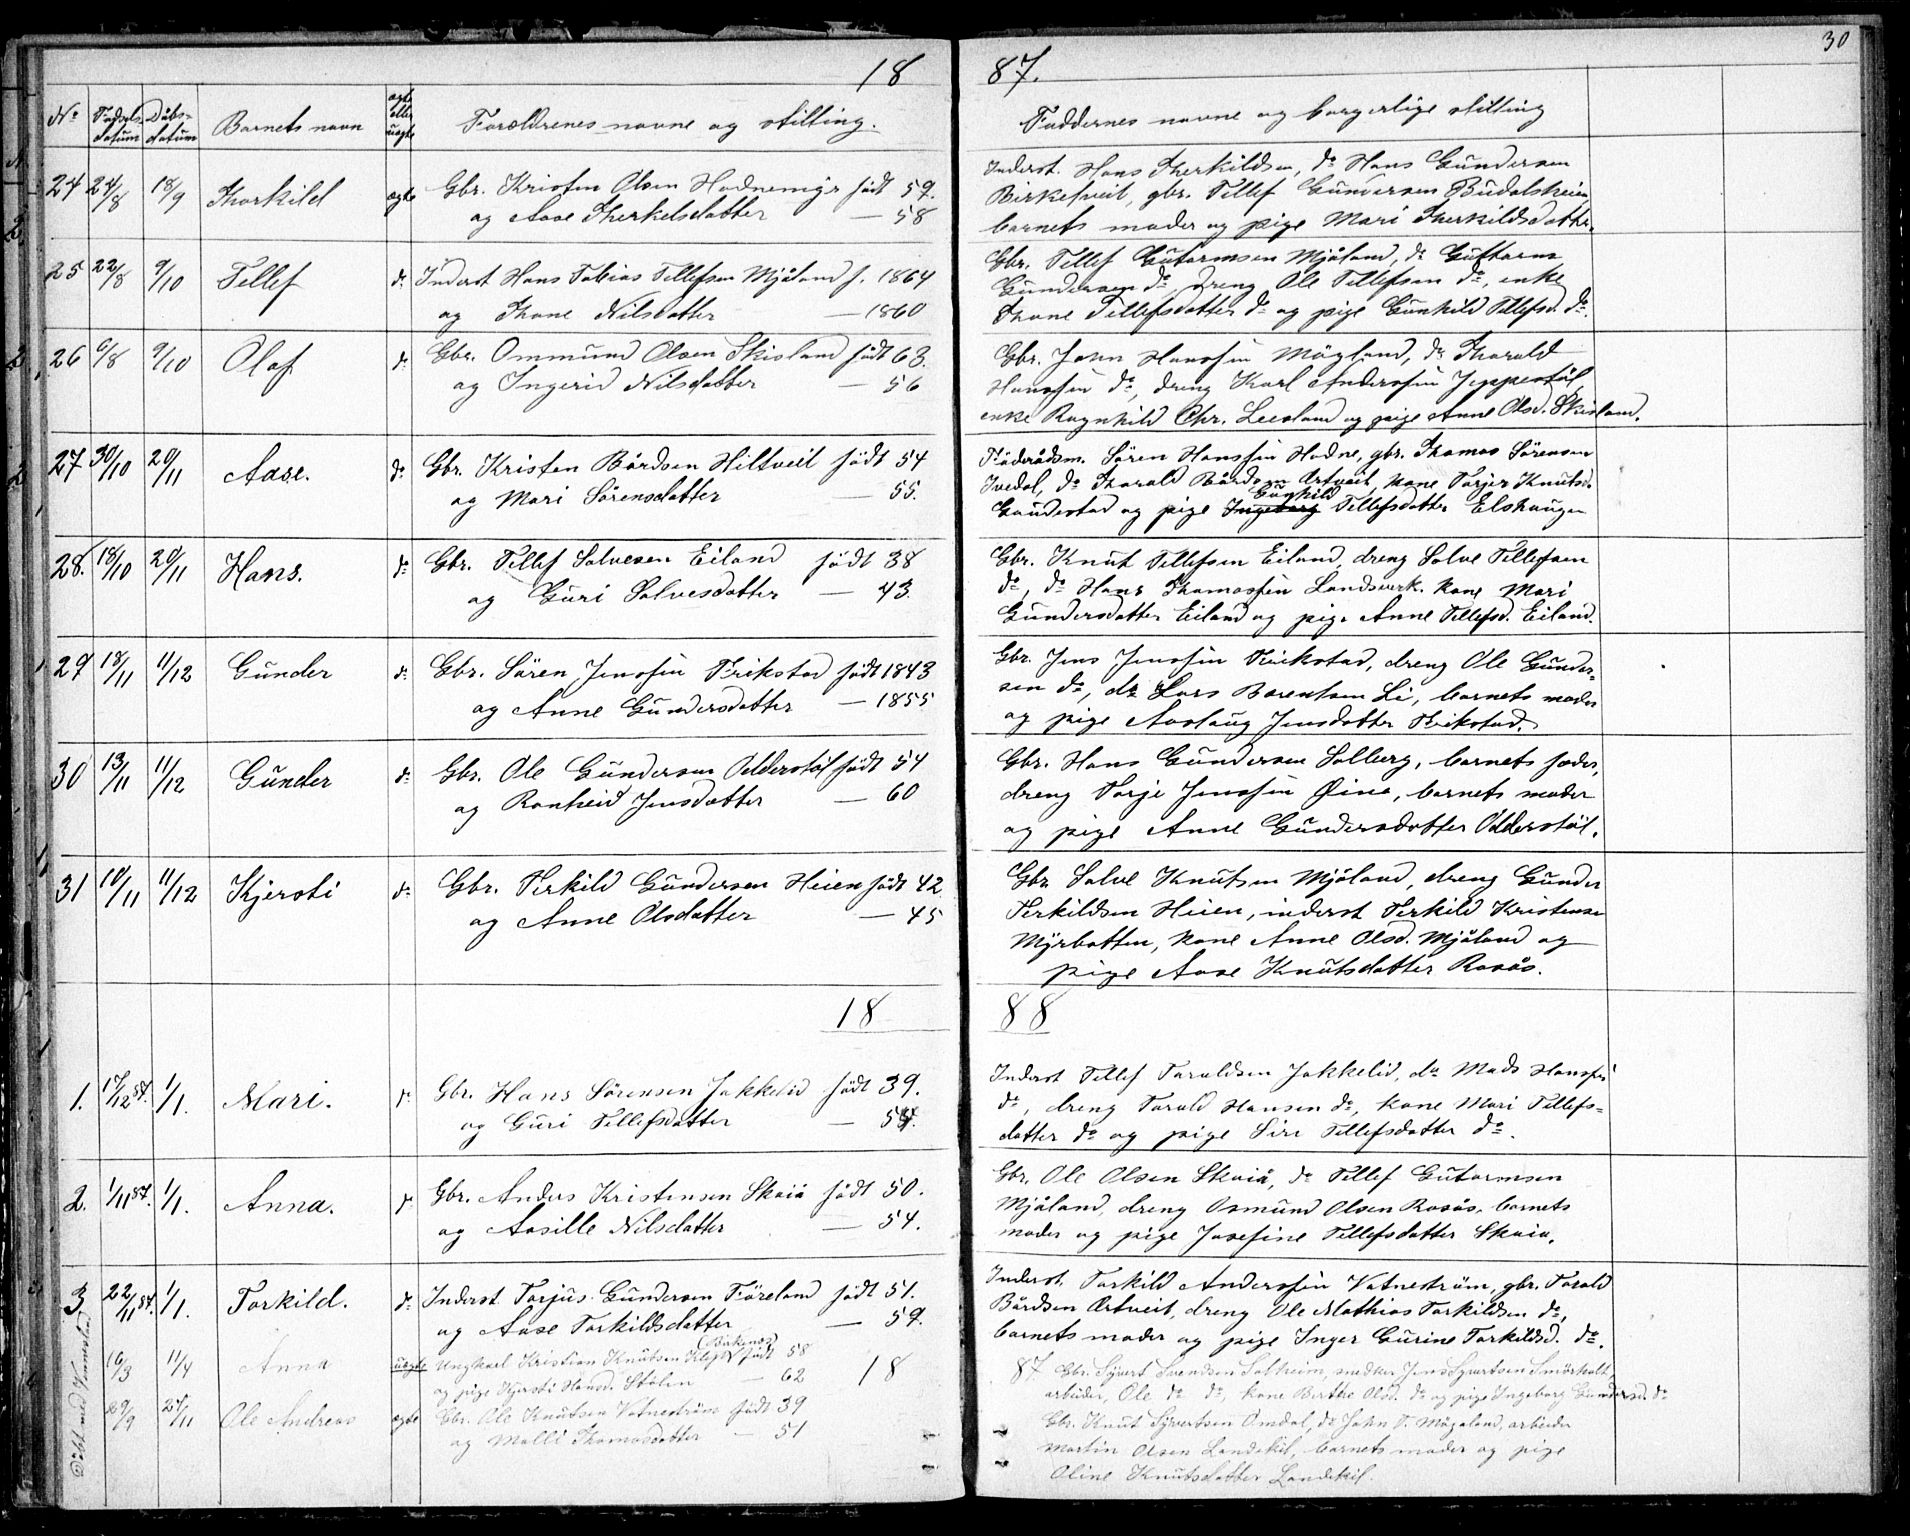 30
18 87.
No Fødsels- Dåbs- Barnets navn ægte Forældrenes navne og stilling. Faddernes navne og borgerlige stilling
datum datum eller
uægte
24 24/8 18/9 Thorkild ægte Gbr. Kristen Olsen Hodnemyr født 59.
og Aase Therkelsdatter — 58
Inderst. Hans Therkildsen, do Hans Gundersen
Birketveit, gbr. Tellef Gundersen Budalsheien
barnets moder og pige Mari Therkildsdatter.
25 22/8 9/10 Tellef do Inderst Hans Tobias Tellefsen Mjåland f. 1864
og Thone Nilsdatter — 1860
Gbr. Tellef Gutormsen Mjåland, do Guttorm
Gundersen do, dreng Ole Tellefsen do, enke
Thone Tellefsdatter do og pige Gunhild Tellefsd. do.
26 6/8 9/10 Olaf do Gbr. Ommund Olsen Skisland født 63.
og Ingerid Nilsdatter — 56
Gbr. John Hanssen Mögland, do Tharald
Hanssen do, dreng Karl Anderssen Jeppestöl,
enke Ragnhild Chr. Leesland og pige Anne Olsd. Skisland.
27 30/10 20/11 Aase. do Gbr. Kristen Bårdsen Hiltveit född 54
og Mari Sörensdatter — 55.
Föderådsm. Sören Hanssen Hodne, gbr. Thomas Sörensen
Ivedal, do Tharald Bårdsen Artveit, kone Torjer Knutsd.
Gunhild
Gaudestad og pige Ingeborg Tellefsdatter Elshaugen
28. 18/10 20/11 Hans. do Gbr. Tellef Salvesen Eiland født 38
og Guri Salvesdatter — 43.
Gbr. Knut Tellefsen Eiland, dreng Salve Tellefsen
do, do Hans Thomassen Landsverk. kone Mari
Gundersdatter Eiland og pige Anne Tellefsd. Eiland.
29 18/11 11/12 Gunder do Gbr. Sören Jenssen Frikstad født 1843
og Anne Gundersdatter — 1855
Gbr. Jens Jenssen Frikstad, dreng Ole Gunder-
sen do, do Lars Barentsen Li, barnets moder
og pige Aaslaug Jensdatter Frikstad.
30 13/11 11/12 Gunder do Gbr. Ole Gundersen Odderstøl født 54
og Ronheid Jensdatter — 60
Gbr. Hans Gundersen Solberg, barnets fader,
dreng Torje Jenssen Øina, barnets moder
og pige Anne Gundersdatter Odderstöl.
31 10/11 11/12 Kjersti do Gbr. Terkild Gundersen Heien født 42
og Anne Olsdatter — 45
Gbr. Salve Knutsen Mjåland, dreng Gunder
Terkildsen Heien, inderst Terkild Kristensen
Myrbotten, kone Anne Olsd. Mjåland og
pige Aase Knutsdatter Rosås.
18 88
1. 17/12 87. 1/1. Mari. do Gbr. Hans Sörensen Jakkelid født 39.
og Guri Tellefsdatter — 54.
Inderst Tellef Taraldsen Jakkelid, do Mads Hanssen
do, dreng Tarald Hansen do, kone Mari Tellefs-
datter do og pige Siri Tellefsdatter do.
2. 1/11 87. 1/1. Anna. do Gbr. Anders Kristensen Skaiå født 50.
og Aasille Nilsdatter — 54.
Gbr. Ole Olsen Skaiå, do Tellef Gutormsen
Mjåland, dreng Osmund Olsen Rosås, barnets
moder og pige Josefine Tellefsdatter Skaia.
3. 22/11 87. 1/1. Torkild. do Inderst Torjus Gundersen Föreland født 51.
og Aase Torkildsdatter — 59.
Inderst. Torkild Anderssen Vatneström, gbr. Torald
Bårdsen Artveit, dreng Ole Mathias Torkildsen do,
barnets moder og pige Inger Gurine Torkildsd. do.
Döbt med Vennesland
16/3 11/4 Anna uægte Ungkarl Kristian Knutsen (Birkenes) født 58
og pige Kjersti Hansd. Stölen — 62 18
87 Gbr. Syvert Svendsen Solheim, snedker Jens Syvertsen Smörholt,
arbeider, Ole do do, kone Birthe Olsd. do og pige Ingeborg Gundersd. do
29/9 27/11 Ole Andreas ægte Gbr. Ole Knutsen Vatneström født 39
og Malli Thomasdatter — 51
Gbr. Knut Syvertsen Omdal, do John T. Mögeland, arbeider
Martin Olsen Landekil, barnets moder og pige
Oline Knutsdatter Landekil.